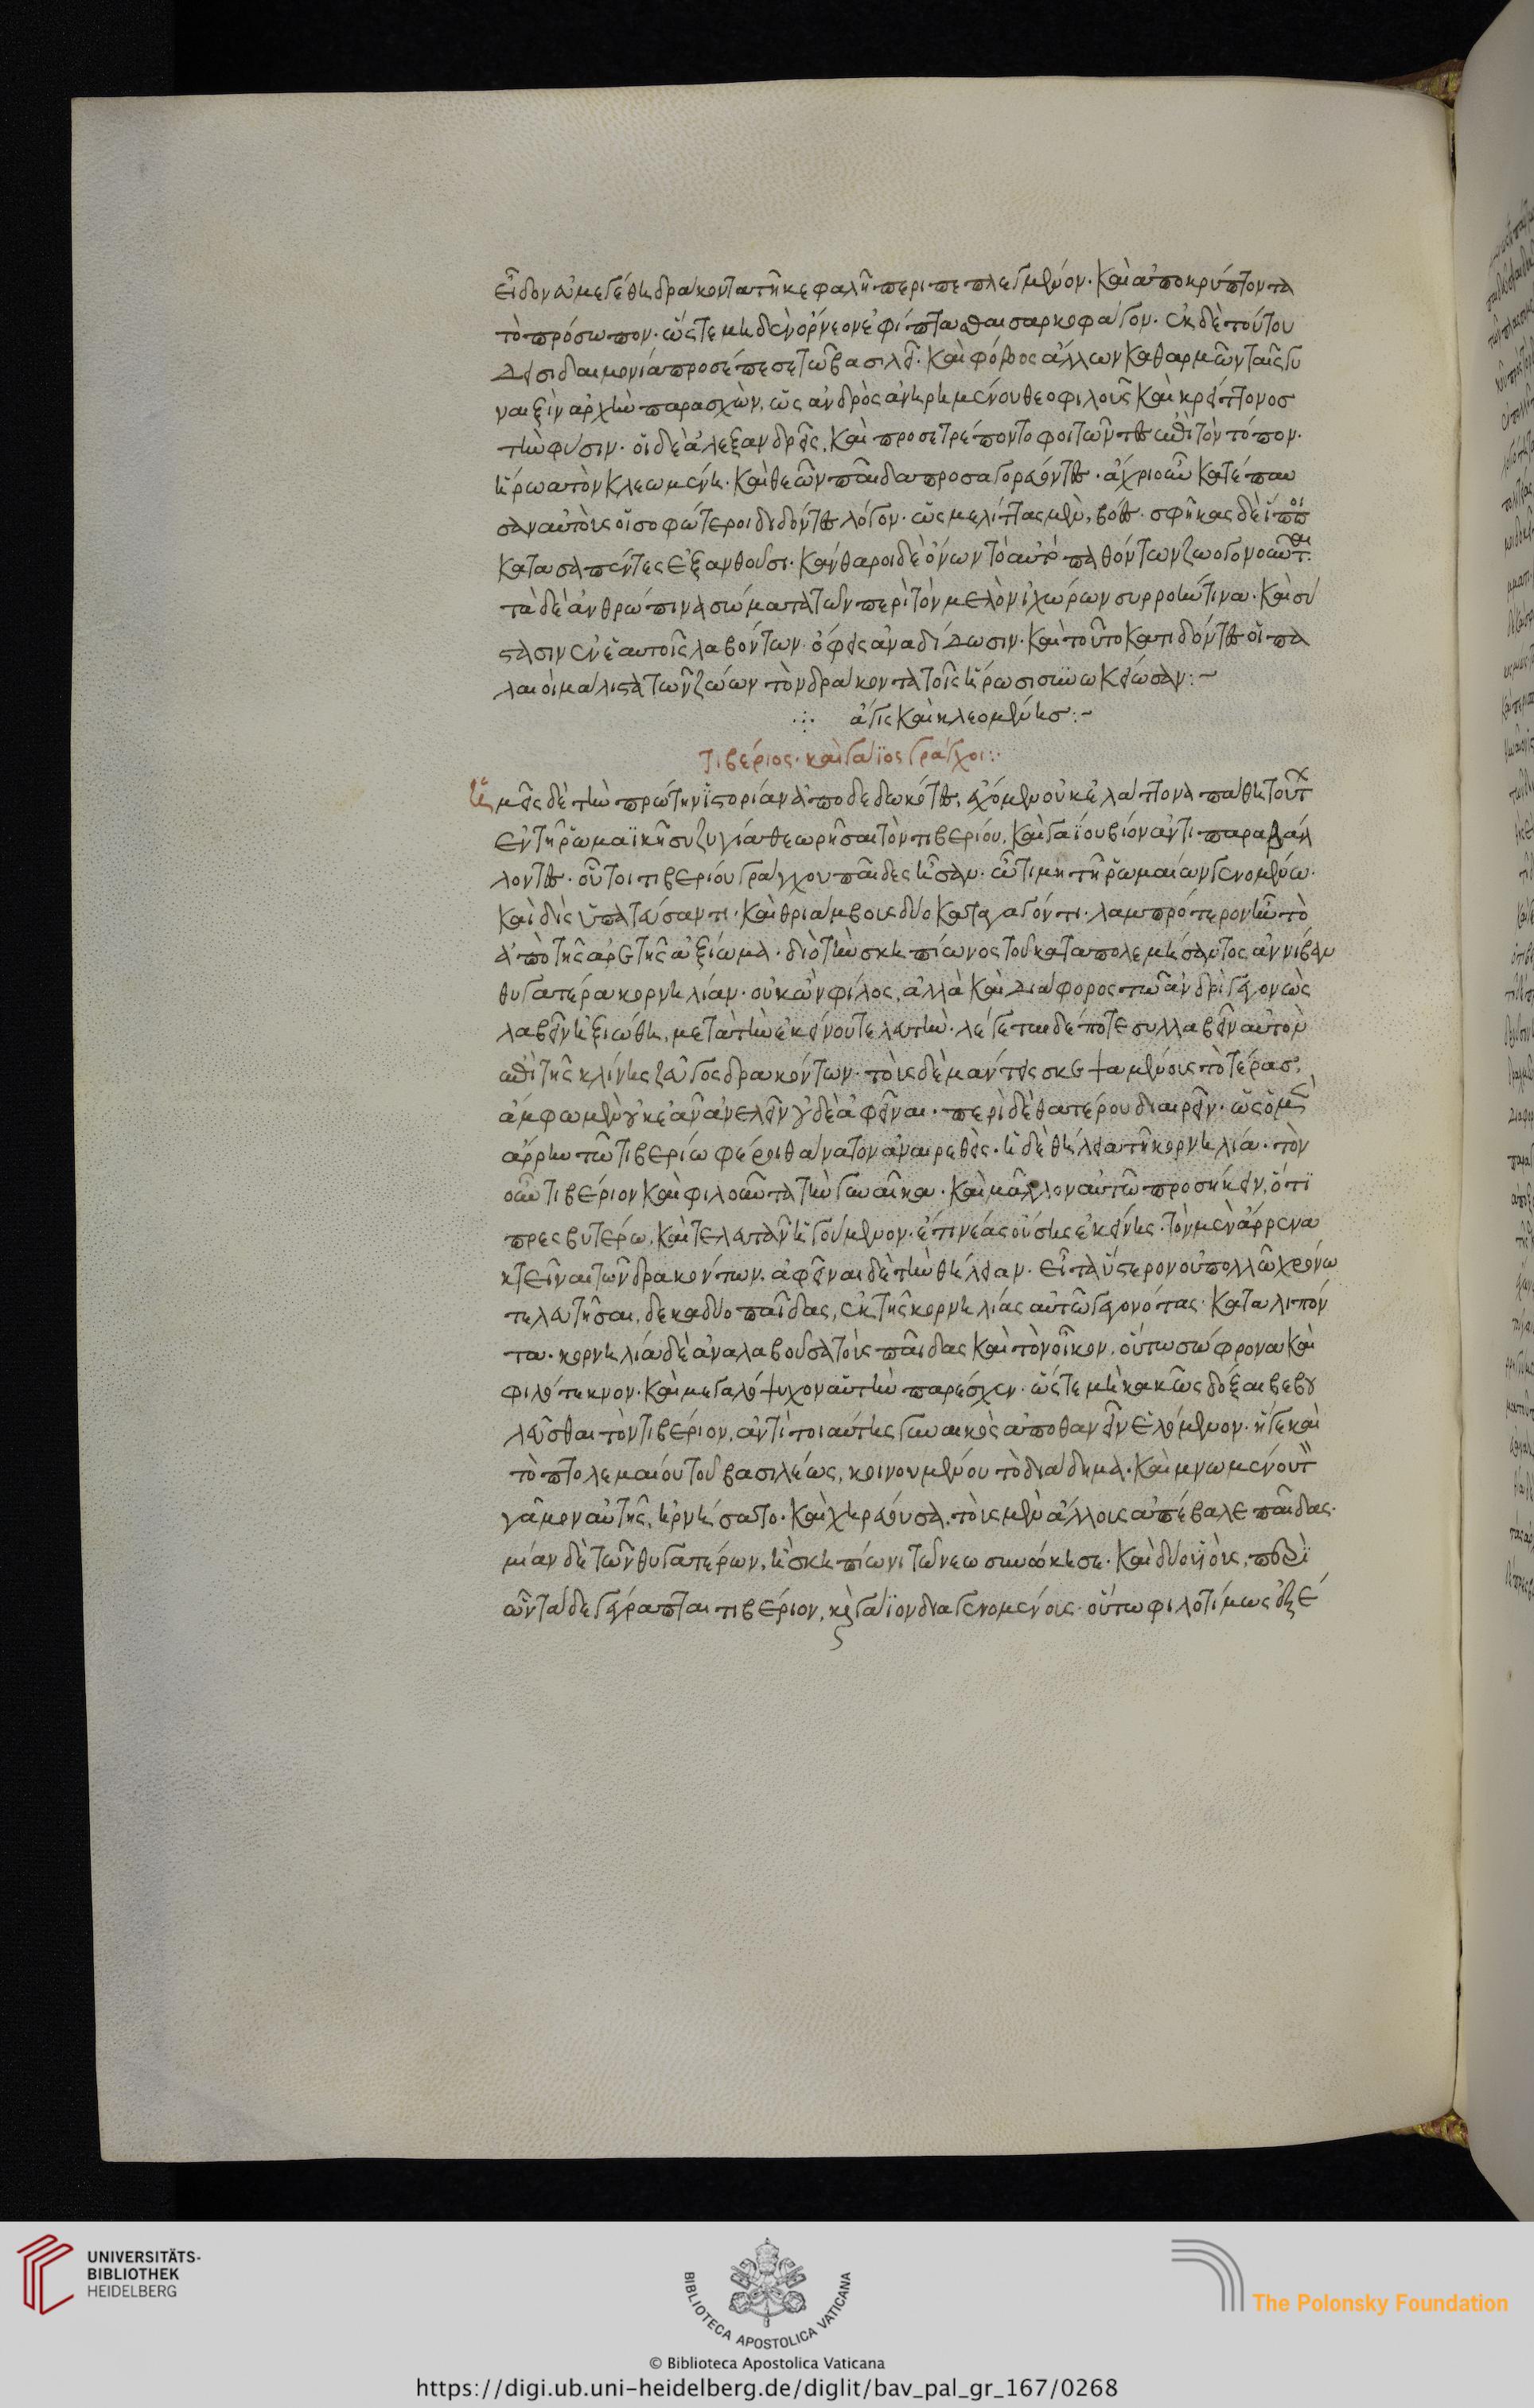 εἶδον εὐμεγέθη δράκοντα τῆ κεφαλῆ περιπεπλεγμένον· καὶ ἀποκρύπτοντα
τὸ πρόσωπον· ὥστε μηδὲν ὄρνεον ἐφίπτασθαι σαρκοφάγον· ἐκ δὲ τούτου
δεισιδαιμονία προσέπεσε τῶ βασιλεῖ· καὶ φόβος ἄλλων καθαρμῶν ταῖς γυ
ναιξὶν ἀρχὴν παρασχὼν, ὡς ἀνδρὸς ἀνηρημένου θεοφιλοῦς καὶ κρείττονος
τὴν φύσιν· οἱ δὲ ἀλεξανδρεῖς, καὶ προσετρέποντο φοιτῶντες ἐπὶ τὸν τόπον·
ἥρωα τὸν κλεωμένη· καὶ θεῶν παῖδα προσαγορεύοντες· ἄχρι οὗ κατέπαυ
σαν αὐτοὺς οἱ σοφώτεροι διδόντες λόγον· ὡς μελίττας μὲν, βόες· σφῆκας δὲ ἵπποι
κατασαπέντες ἐξανθοῦσι· κάνθαροι δὲ ὄνων τὸ αὐτὸ παθόντων ζωογονοῦνται·
τὰ δὲ ἀνθρώπινα σώματα τῶν περὶ τὸν μυελὸν ἰχώρων συρροήν τινα· καὶ σύ
στασιν ἐν ἑαυτοῖς λαβόντων· ὄφεις ἀναδίδωσιν· καὶ τοῦτο κατιδόντες οἱ πα
λαιοὶ μάλιστα τῶν ζώων τὸν δράκοντα τοῖς ἥρωσι συνωκείωσαν:~
∴ ἄγις καὶ κλεομένης:~
τιβέριος· καὶ γάϊος γράγχοι:·
ἡμεῖς δὲ τὴν πρώτην ἱστορίαν ἀποδεδωκότες, ἔχομεν οὐκ ἐλάττονα πάθη τούτων
ἐν τῆ ῥωμαϊκῆ συζυγία θεωρῆσαι τὸν τιβερίου, καὶ γαΐου βίον ἀντιπαραβάλ
λοντες· οὗτοι τιβερίου γράγχου παῖδες ἦσαν· ὧ τιμητῆ ῥωμαίων γενομένω·
καὶ δὶς ὑπατεύσαντι· καὶ θριάμβους δύο καταγαγόντι· λαμπρότερον ἦν τὸ
ἀπὸ τῆς ἀρετῆς ἀξίωμα· διὸ τὴν σκηπίωνος τοῦ καταπολεμήσαντος ἀννίβαν
θυγατέρα κορνηλίαν· οὐκ ὢν φίλος, ἀλλὰ καὶ διάφορος τῶ ἀνδρὶ γεγονὼς
λαβεῖν ἠξιώθη, μετὰ τὴν ἐκείνου τελευτήν· λέγεται δέ ποτε συλλαβεῖν αὐτὸν
ἐπὶ τῆς κλίνης ζεῦγος δρακόντων· τοὺς δὲ μάντεις σκεψαμένους τὸ τέρας,
ἄμφω μὲν οὐκ ἐᾶν ἀνελεῖν οὐδὲ ἀφεῖναι· περὶ δὲ θατέρου διαιρεῖν· ὡς ὁ μὲν
ἄρρην τῶ τιβερίω φέροι θάνατον ἀναιρεθείς· ἡ δὲ θήλεια τῆ κορνηλία· τὸν
οὖν τιβέριον καὶ φιλοῦντα τὴν γυναῖκα· καὶ μᾶλλον αὐτῶ προσήκειν, ὅντι
πρεσβυτέρω, καὶ τελευτᾶν ἡγούμενον· ἔτι νέας οὔσης ἐκείνης· τὸν μὲν ἄρρενα
κτεῖναι τῶν δρακόντων. ἀφεῖναι δὲ τὴν θήλειαν· εἶτα ὕστερον οὐ πολλῶ χρόνω
τελευτῆσαι, δεκαδύο παῖδας, ἐκ τῆς κορνηλίας αὐτῶ γεγονότας· καταλιπόν
τα· κορνηλία δὲ ἀναλαβοῦσα τοὺς παῖδας καὶ τὸν οἶκον, οὕτω σώφρονα καὶ
φιλότεκνον· καὶ μεγαλόψυχον αὑτὴν παρέσχεν· ὥστε μὴ κακῶς δόξαι βεβου
λεῦσθαι τὸν τιβέριον, ἀντὶ τοιαύτης γυναικὸς ἀποθανεῖν ἑλόμενον· ἥ γε καὶ
τὸ πτολεμαίου τοῦ βασιλέως, κοινουμένου τὸ διάδημα· καὶ μνωμένου τὸν
γάμον αὐτῆς, ἠρνήσατο· καὶ χηρεύουσα, τοὺς μὲν ἄλλους ἀπέβαλε παῖδας·
μίαν δὲ τῶν θυγατέρων, ἣ σκηπίωνι τῶ νέω συνώκησε· καὶ δύο υἱοὺς, περὶ
ὧν τάδε γέγραπται τιβέριον, καὶ γάϊον διαγενομένους· οὕτω φιλοτίμως ἐξέ
ς
UNIVERSITÄTS-
BIBLIOTHEK
HEIDELBERG
BIBLIOTECA APOSTOLICA VATICANA
The Polonsky Foundation
© Biblioteca Apostolica Vaticana
https://digi.ub.uni-heidelberg.de/diglit/bav_pal_gr_167/0268